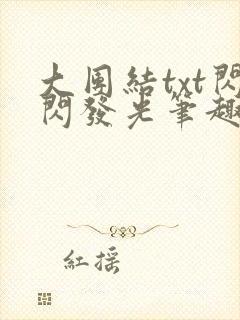 大圑結txt閃
閃發光筆趣
紅摇